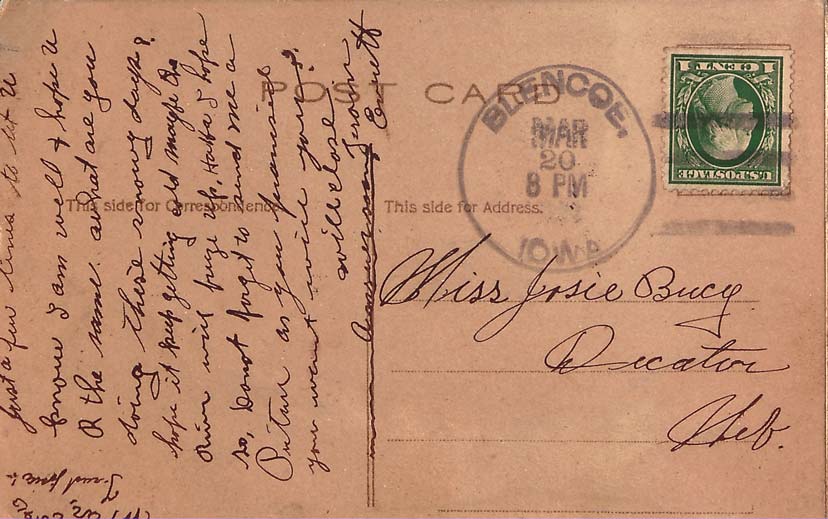 POST CARD
This side for Correspondence.
This side for Address.
BLENCOE,
MAR
20
8 PM
IOWA
1 CENT 1
U.S. POSTAGE
Miss Josie Bucy
Decator
Neb.
Just a few lines to let U
know I am well & hope U
R the same. what are you
doing these snowy days?
hope it keep getting cold maybe the
River will freeze up. Ha ha I hope
so, Do not forget to send me a
Picture as you promised
you want will you?
will close
from
Emett